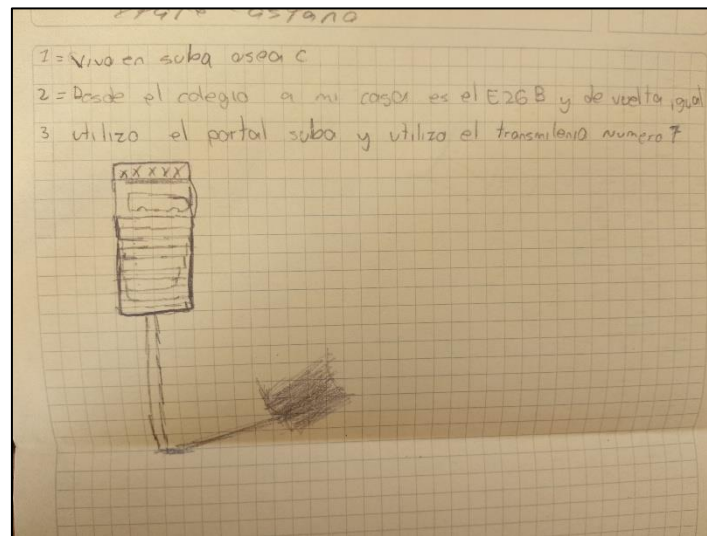 1 = Vivo en suba asea C
2 = Desde el colegio a mi casa es el E26 B y de vuelta igual
3 utilizo el portal suba y utilizo el transmilenio numero 7
XXXXX